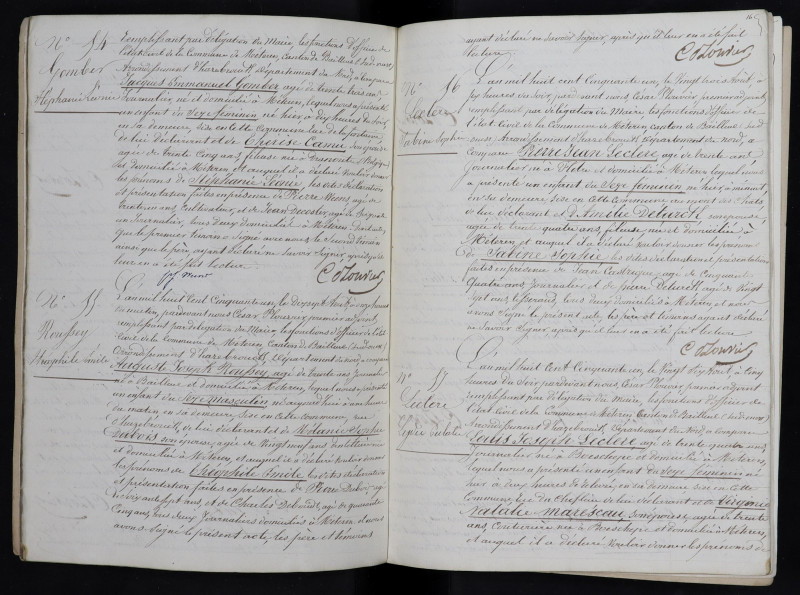 N° 54
Gomber
Stéphanie Léonie
remplissant par délégation du Maire, les fonctions d'officier de
l'état civil de la Commune de Méteren, Canton de Bailleul Sud-ouest,
Arrondissement d'Hazebrouck, Département du Nord, a comparu
Jacques Emmanuel Gomber agé de trente trois ans
Journalier, né et domicilié à Méteren, lequel nous a présenté
un enfant du Sexe féminin né hier à dix heures du soir,
en sa demeure, sise en cette Commune
de lui déclarant et de Thérèse Camu Son épouse
agée de trente Cinq ans, fileuse née à
domicilié à Méteren et auquel il a déclaré vouloir donner
les prénoms de Stéphanie Léonie, les dites déclaration
et présentation faites en présence de Pierre agé de
trente un ans, Cultivateur, et de Jean Decoster, agé de
ans Journalier, tous deux domiciliés à Méteren
que le premier témoin a Signé avec nous, le Second témoin
ainsi que le père, ayant déclaré ne Savoir Signer, après qu'il
leur en a été fait lecture.
C Plouvier
N° 55
Roussey
Théophile Emile
L'an mil huit Cent Cinquante un, le Dix sept Août, à
du matin, pardevant nous César Plouvier premier adjoint,
remplissant par délégation du Maire, les fonctions d'officier de l'état
civil de la Commune de Méteren Canton de Bailleul Sud-ouest
Arrondissement d'hazebrouck, Département du Nord, a comparu
Auguste Joseph Roussey, agé de trente ans Journalier
né à Bailleul et domicilié à Méteren, lequel nous a présenté
un enfant du Sexe masculin né aujourd'hui à une heure
du matin, en sa demeure, sise en cette Commune, rue
d'hazebrouck, de lui déclarant et de Mélanie Sophie
Dubois son épouse, agée de vingt ans dentellière
et domiciliée à Méteren, et auquel il a déclaré vouloir donner
les prénoms de Théophile Emile les dites déclaration
et présentation, faites en présence de Pierre Dubois agé
de sept ans, et de Charles agé de quarante
Cinq ans, tous deux Journaliers domiciliés à Méteren et avons
avons Signé le présent acte, les père et témoins
ayant déclaré ne Savoir Signer, après qu'il leur en a été fait
lecture.
C Plouvier
N° 56
Leclerc
Sabine Sophie
L'an mil huit Cent Cinquante un, le vingt trois Août, à
heures du Soir, par devant nous, César Plouvier premier adjoint
remplissant par délégation du Maire les fonctions d'officier de
l'état civil de la Commune de Méteren canton de Bailleul Sud
ouest, Arrondissement d'hazebrouck, Département du Nord, a
comparu Pierre Jean Leclerc agé de trente ans
Journalier né à Flêtre et domicilié à Méteren lequel nous
a présenté un enfant du Sexe féminin né hier à minuit
en Sa demeure, Sise en cette Commune au
de lui déclarant et d'Amélie Deturck son épouse,
agée de trente quatre ans, fileuse, née et domiciliée à
Méteren et auquel il a déclaré vouloir donner les prénoms
de Sabine Sophie, les dites déclaration et présentation
faites en présence de Jean agé de Cinquante
quatre ans, Journalier et de pierre Deturck agé de vingt
sept ans, tous deux domiciliés à Méteren et avons
nous Signé le présent acte, les père et témoins ayant déclaré
ne Savoir Signer, après qu'il leur en a été fait lecture.
C Plouvier
N° 57
Leclerc
L'an mil huit Cent Cinquante un, le vingt Six Août, à Cinq
heures du Soir, pardevant nous, César Plouvier premier adjoint
remplissant par délégation du Maire, les fonctions d'officier de
l'état civil de la Commune de Méteren Canton de Bailleul Sud-ouest
Arrondissement d'Hazebrouck, Département du Nord, a comparu
Louis Joseph Leclerc agé de trente quatre ans,
Journalier né à Boeschepe et domicilié à Méteren,
lequel nous a présenté un enfant du Sexe féminin né
hier à dix heures de relevée, en sa demeure sise en cette
Commune, de lui déclarant et de Virginie
Natalie Marescau, son épouse, agée de trente
ans, Couturière née à Boeschepe et domiciliée à Méteren,
et auquel il a déclaré vouloir donner les prénoms de